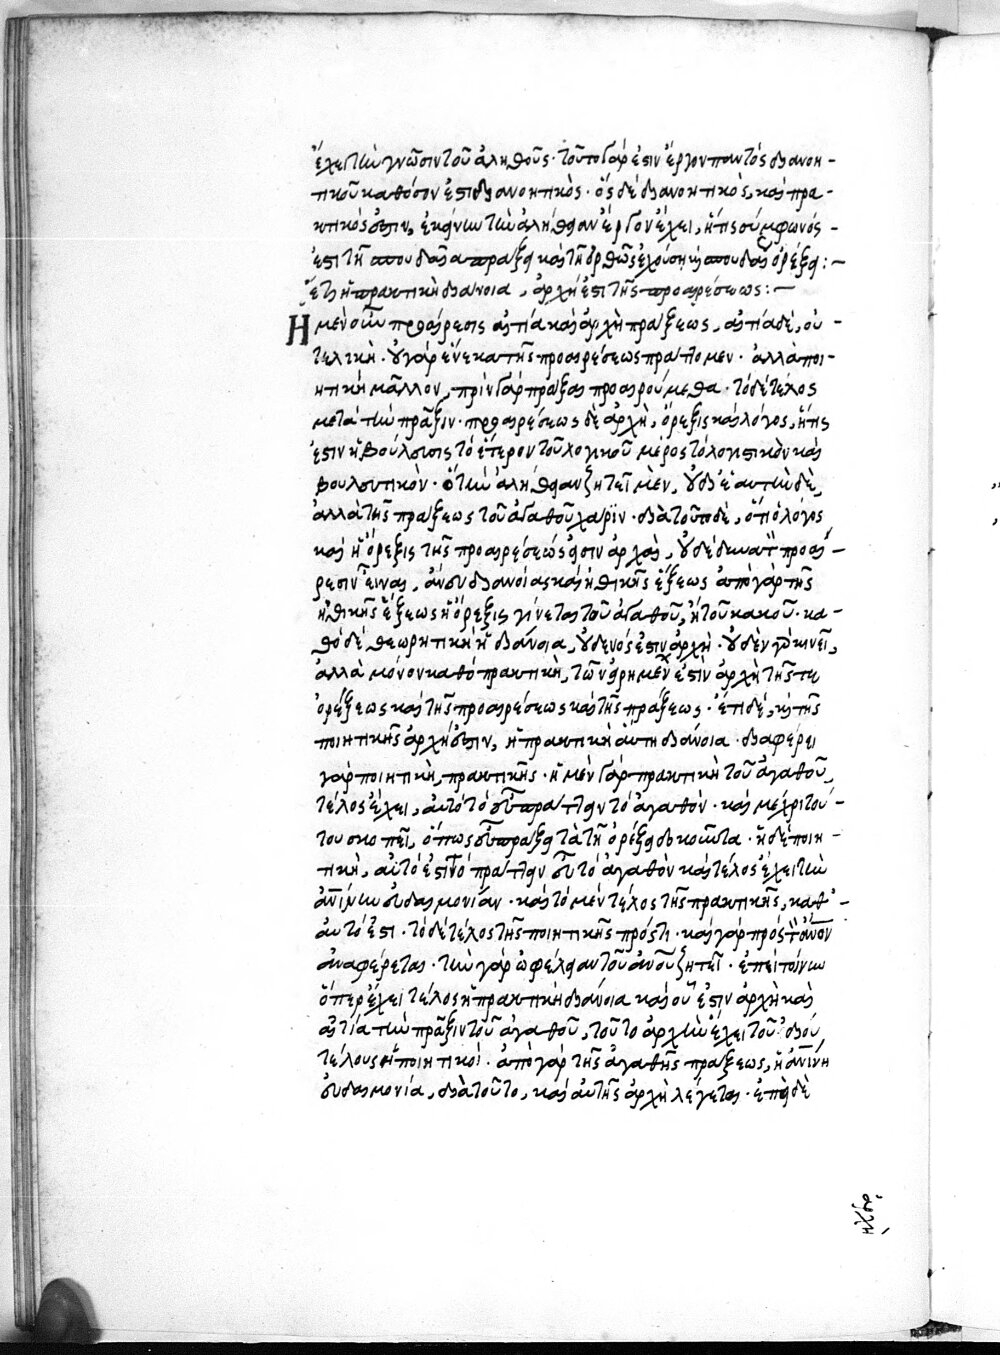 ἔχει τὴν γνῶσιν τοῦ ἀληθοῦς· τοῦτο γάρ ἐστιν ἔργον παντὸς διανοη-
τικοῦ καθόσον ἐστὶ διανοητικός· ὅς δὲ διανοητικός, καὶ πρα-
κτικός ἐστιν, ἐκείνην τὴν ἀλήθειαν ἔργον ἔχει, ἥτις σύμφωνός
ἐστι τῇ σπουδαίᾳ πράξει καὶ τῇ ὀρθῶς ἐχούσῃ καὶ σπουδαίᾳ ὀρέξει:-
ἔτι ἡ πρακτικὴ διάνοια, ἀρχή ἐστι τῆς προαιρέσεως:-
Ἡ μὲν οὖν προαίρεσις αἰτία καὶ ἀρχὴ πράξεως, αἰτία δὲ, οὐ
τελική· οὐ γὰρ ἕνεκα τῆς προαιρέσεως πράττομεν· ἀλλὰ ποι-
ητικὴ μᾶλλον, πρὶν γὰρ πρᾶξαι προαιρούμεθα· τὸ δὲ τέλος
μετὰ τὴν πρᾶξιν· προαιρέσεως δὲ ἀρχὴ, ὄρεξις καὶ λόγος, ἥτις
ἐστὶν ἡ βούλευσις τὸ ἕτερον τοῦ λογικοῦ μέρος τὸ λογιστικὸν καὶ
βουλευτικὸν· ὃ τὴν ἀλήθειαν ζητεῖ μὲν, οὐ δι' ἑαυτὴν δὲ,
ἀλλὰ τῆς πράξεως τοῦ ἀγαθοῦ χάριν· διὰ τοῦτο δὲ, ὅτι ὁ λόγος
καὶ ἡ ὄρεξις τῆς προαιρέσεώς εἰσιν ἀρχαὶ, οὐδὲ δυνατὸν προαί-
ρεσιν εἶναι, ἄνευ διανοίας καὶ ἠθικῆς ἕξεως ἀπὸ γὰρ τῆς
ἠθικῆς ἕξεως ἡ ὄρεξις γίνεται τοῦ ἀγαθοῦ, ἢ τοῦ κακοῦ· κα-
θὸ δὲ θεωρητικὴ ἡ διάνοια, οὐδενός ἐστιν ἀρχὴ· οὐδὲν γὰρ κινεῖ,
ἀλλὰ μόνον καθὸ πρακτικὴ, τῶν εἰρημένων ἐστὶν ἀρχὴ τῆς τε
ὀρέξεως καὶ τῆς προαιρέσεως καὶ τῆς πράξεως· ἔτι δὲ, καὶ τῆς
ποιητικῆς ἀρχή ἐστιν, ἡ πρακτικὴ αὕτη διάνοια· διαφέρει
γὰρ ποιητικὴ, πρακτικῆς· ἡ μὲν γὰρ πρακτικὴ τοῦ ἀγαθοῦ,
τέλος ἔχει, αὐτὸ τὸ εὖ πράττειν τὸ ἀγαθὸν· καὶ μέχρι τού-
του σκοπεῖ, ὅπως εὖ πράξει τὰ τῇ ὀρέξει δοκοῦντα· ἡ δὲ ποιη-
τικὴ, αὐτό ἐστι τὸ πράττειν εὖ τὸ ἀγαθὸν καὶ τέλος ἔχει τὴν
εὐδαιμονίαν· καὶ τὸ μὲν τέλος τῆς πρακτικῆς, καθ'-
αυτό ἐστι· τὸ δὲ τέλος τῆς ποιητικῆς πρός τι· καὶ γὰρ πρὸς τὸν ἄνθρωπον
ἀναφέρεται· τὴν γὰρ ὠφέλειαν τοῦ ἀνθρώπου ζητεῖ· ἐπεὶ τοίνυν
ὅπερ ἔχει τέλος ἡ πρακτικὴ διάνοια καὶ οὗ ἐστιν ἀρχὴ καὶ
αἰτία τὴν πρᾶξιν τοῦ ἀγαθοῦ, τοῦτο ἀρχὴν ἔχει τοῦ ἰδίου
τέλους ἡ ποιητική· ἀπὸ γὰρ τῆς ἀγαθῆς πράξεως, ἡ ἀνθρωπίνη
εὐδαιμονία, διὰ τοῦτο, καὶ αὐτῆς ἀρχὴ λέγεται· ἐπεὶ δὲ